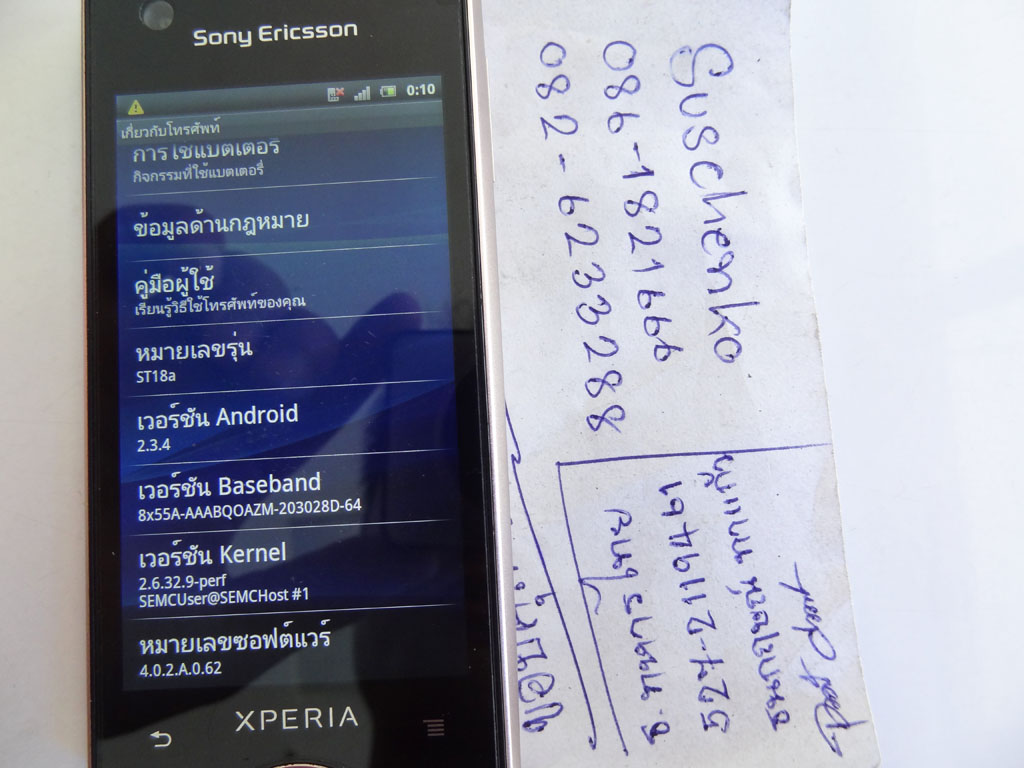 Sony Ericsson
0:10
เกี่ยวกับโทรศัพท์
การใช้แบตเตอรี่
กิจกรรมที่ใช้แบตเตอรี่
ข้อมูลด้านกฎหมาย
คู่มือผู้ใช้
เรียนรู้วิธีใช้โทรศัพท์ของคุณ
หมายเลขรุ่น
ST18a
เวอร์ชัน Android
2.3.4
เวอร์ชัน Baseband
8x55A-AAABQOAZM-203028D-64
เวอร์ชัน Kernel
2.6.32.9-perf
SEMCUser@SEMCHost #1
หมายเลขซอฟต์แวร์
4.0.2.A.0.62
XPERIA
Suschenko
086-1821666
082-6233288